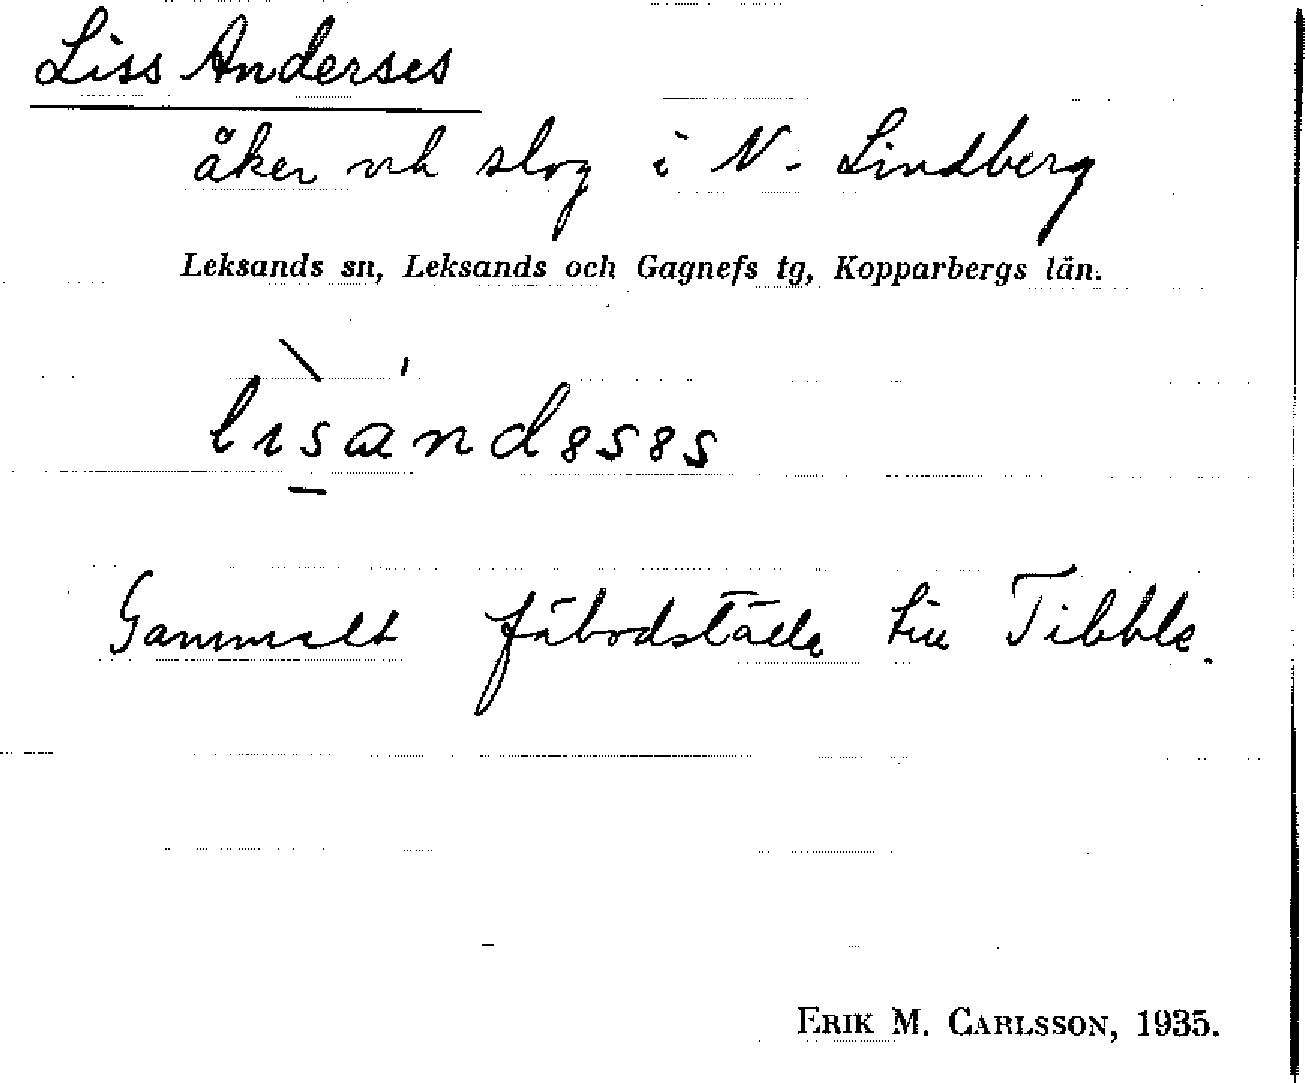 Liss Anderses
åker och slog i N. Lindberg
Leksands sn, Leksands och Gagnefs tg, Kopparbergs län.
lɪsandəsəs
Gammalt fäbodställe till Tibble.
ERIK M. CARLSSON, 1935.